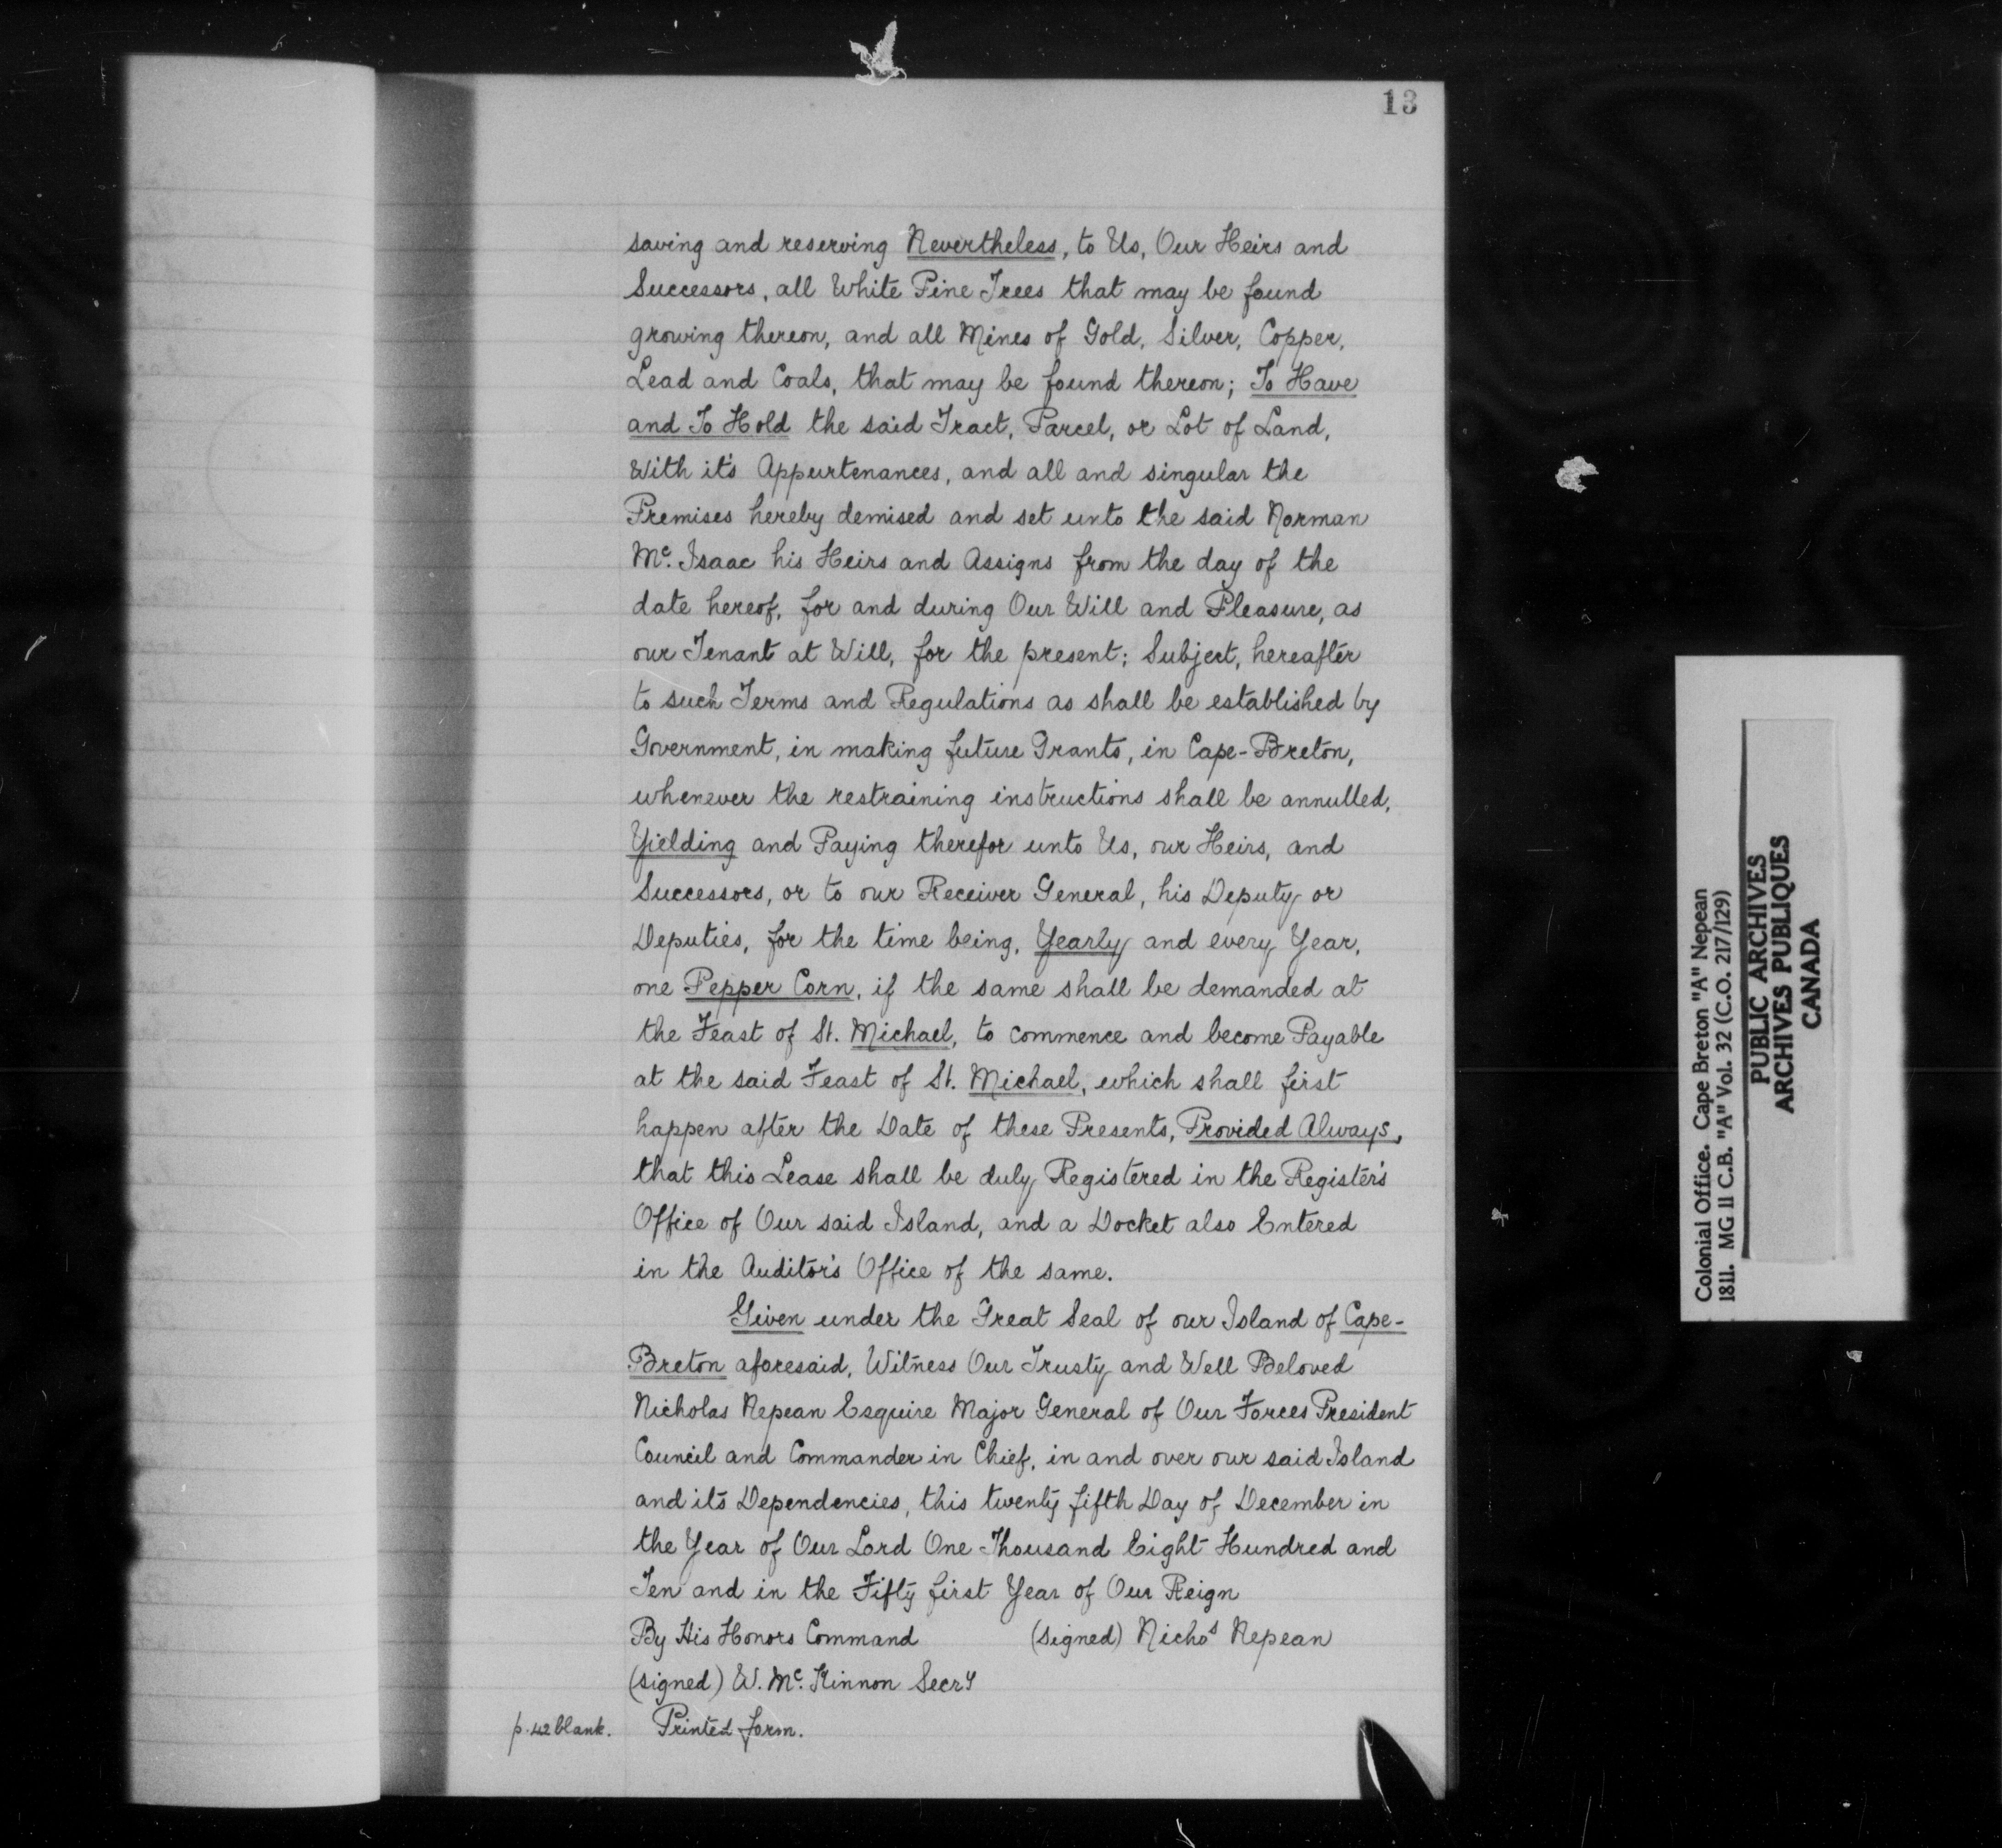 13
saving and reserving Nevertheless, to Us, Our Heirs and
Successors, all White Pine Trees that may be found
growing thereon, and all Mines of Gold, Silver, Copper,
Lead and Coals, that may be found thereon; To Have
and To Hold the said Tract, Parcel, or Lot of Land,
With it's Appurtenances, and all and singular the
Premises hereby demised and set unto the said Norman
Mc. Isaac his Heirs and Assigns from the day of the
date hereof, for and during Our Will and Pleasure, as
our Tenant at Will, for the present; Subject, hereafter
to such Terms and Regulations as shall be established by
Government, in making future Grants, in Cape-Breton,
whenever the restraining instructions shall be annulled,
Yielding and Paying therefor unto Us, our Heirs, and
Successors, or to our Receiver General, his Deputy or
Deputies, for the time being, Yearly and every Year,
one Pepper Corn, if the same shall be demanded at
the Feast of St. Michael, to commence and become Payable
at the said Feast of St. Michael, which shall first
happen after the Date of these Presents, Provided Always,
that this Lease shall be duly Registered in the Register's
Office of Our said Island, and a Docket also Entered
in the Auditor's Office of the same.
Given under the Great Seal of our Island of Cape-
Breton aforesaid, Witness Our Trusty and Well Beloved
Nicholas Nepean Esquire Major General of Our Forces President
Council and Commander in Chief, in and over our said Island
and its Dependencies, this twenty fifth Day of December in
the Year of Our Lord One Thousand Eight Hundred and
Ten and in the Fifty first Year of Our Reign
By His Honors Command (signed) Nichos Nepean
(signed) W. Mc. Kinnon Secry
p. 42 blank. Printed form.
Colonial Office. Cape Breton "A" Nepean
1811. MG 11 C.B. "A" Vol. 32 (C.O. 217/129)
PUBLIC ARCHIVES
ARCHIVES PUBLIQUES
CANADA